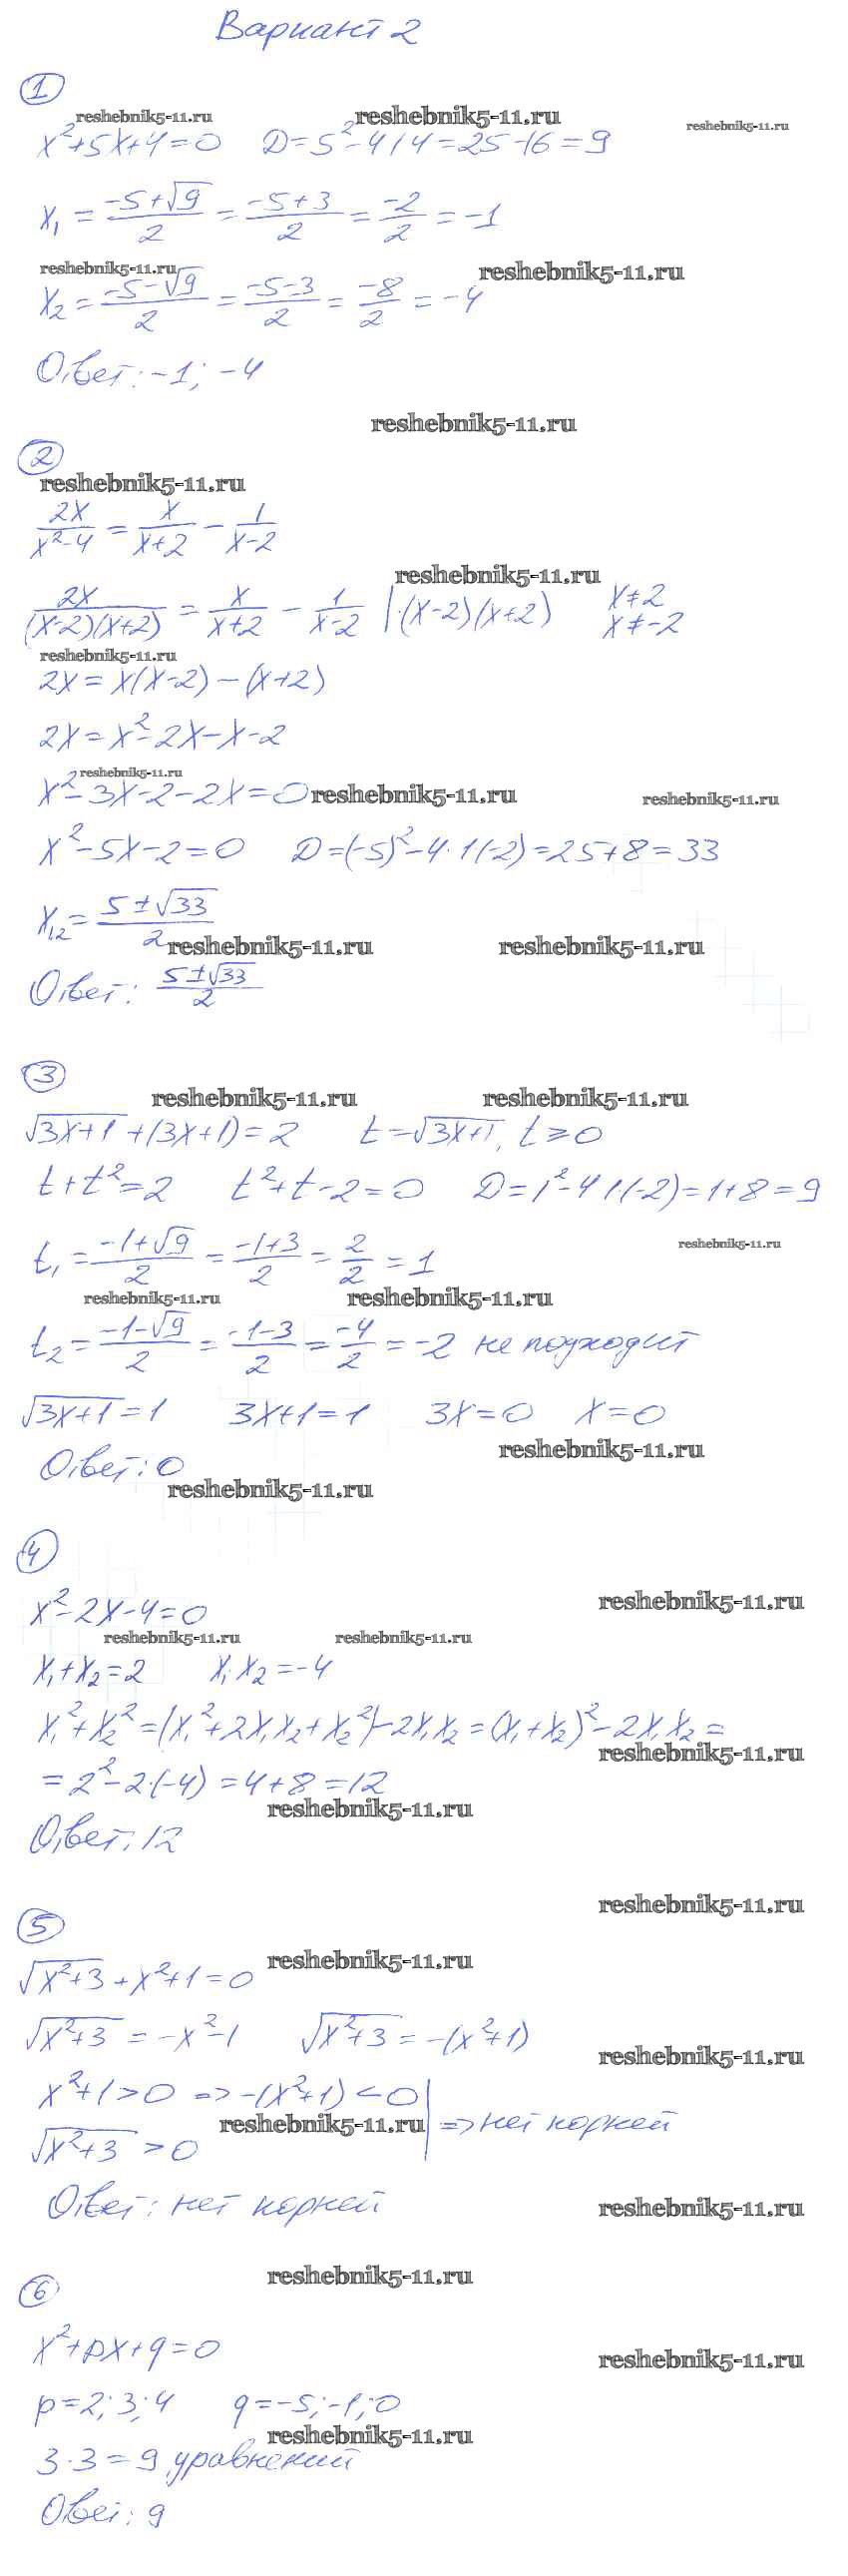 Вариант 2
1
reshebnik5-11.ru reshebnik5-11.ru reshebnik5-11.ru
x²+5x+4=0 D=5²-4·1·4=25-16=9
x₁ = (-5+√9)/2 = (-5+3)/2 = -2/2 = -1
reshebnik5-11.ru reshebnik5-11.ru
x₂ = (-5-√9)/2 = (-5-3)/2 = -8/2 = -4
Ответ: -1; -4
reshebnik5-11.ru
2
reshebnik5-11.ru
2x/(x²-4) = x/(x+2) - 1/(x-2)
reshebnik5-11.ru
2x/((x-2)(x+2)) = x/(x+2) - 1/(x-2) |·(x-2)(x+2) x≠2 x≠-2
reshebnik5-11.ru
2x=x(x-2)-(x+2)
2x=x²-2x-x-2
reshebnik5-11.ru
x²-3x-2-2x=0 reshebnik5-11.ru reshebnik5-11.ru
x²-5x-2=0 D=(-5)²-4·1·(-2)=25+8=33
x₁,₂ = (5±√33)/2
reshebnik5-11.ru reshebnik5-11.ru
Ответ: (5±√33)/2
3
reshebnik5-11.ru reshebnik5-11.ru
√(3x+1)+(3x+1)=2 t=√(3x+1), t≥0
t+t²=2 t²+t-2=0 D=1²-4·1·(-2)=1+8=9
reshebnik5-11.ru
t₁ = (-1+√9)/2 = (-1+3)/2 = 2/2 = 1
reshebnik5-11.ru reshebnik5-11.ru
t₂ = (-1-√9)/2 = (-1-3)/2 = -4/2 = -2 не подходит
√(3x+1)=1 3x+1=1 3x=0 x=0
reshebnik5-11.ru
Ответ: 0
reshebnik5-11.ru
4
x²-2x-4=0 reshebnik5-11.ru
reshebnik5-11.ru reshebnik5-11.ru
x₁+x₂=2 x₁·x₂=-4
x₁²+x₂²=(x₁²+2x₁x₂+x₂²)-2x₁x₂=(x₁+x₂)²-2x₁x₂=
reshebnik5-11.ru
=2²-2·(-4)=4+8=12
reshebnik5-11.ru
Ответ: 12
reshebnik5-11.ru
5
reshebnik5-11.ru
√(x²+3)+x²+1=0
√(x²+3)=-x²-1 √(x²+3)=-(x²+1)
reshebnik5-11.ru
x²+1>0 => -(x²+1)<0
reshebnik5-11.ru => нет корней
√(x²+3)>0
Ответ: нет корней
reshebnik5-11.ru
reshebnik5-11.ru
6
x²+px+q=0
reshebnik5-11.ru
p=2; 3; 4 q=-5; -1; 0
reshebnik5-11.ru
3·3=9 уравнений
Ответ: 9